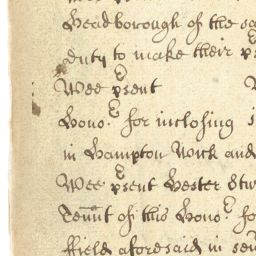 Headborough of the
duty to make their
Wee psent
Hono.r for inclosing
in Hampton Wick and
Wee psent Hester
Tennt of this Hono.r
ffield aforesaid in